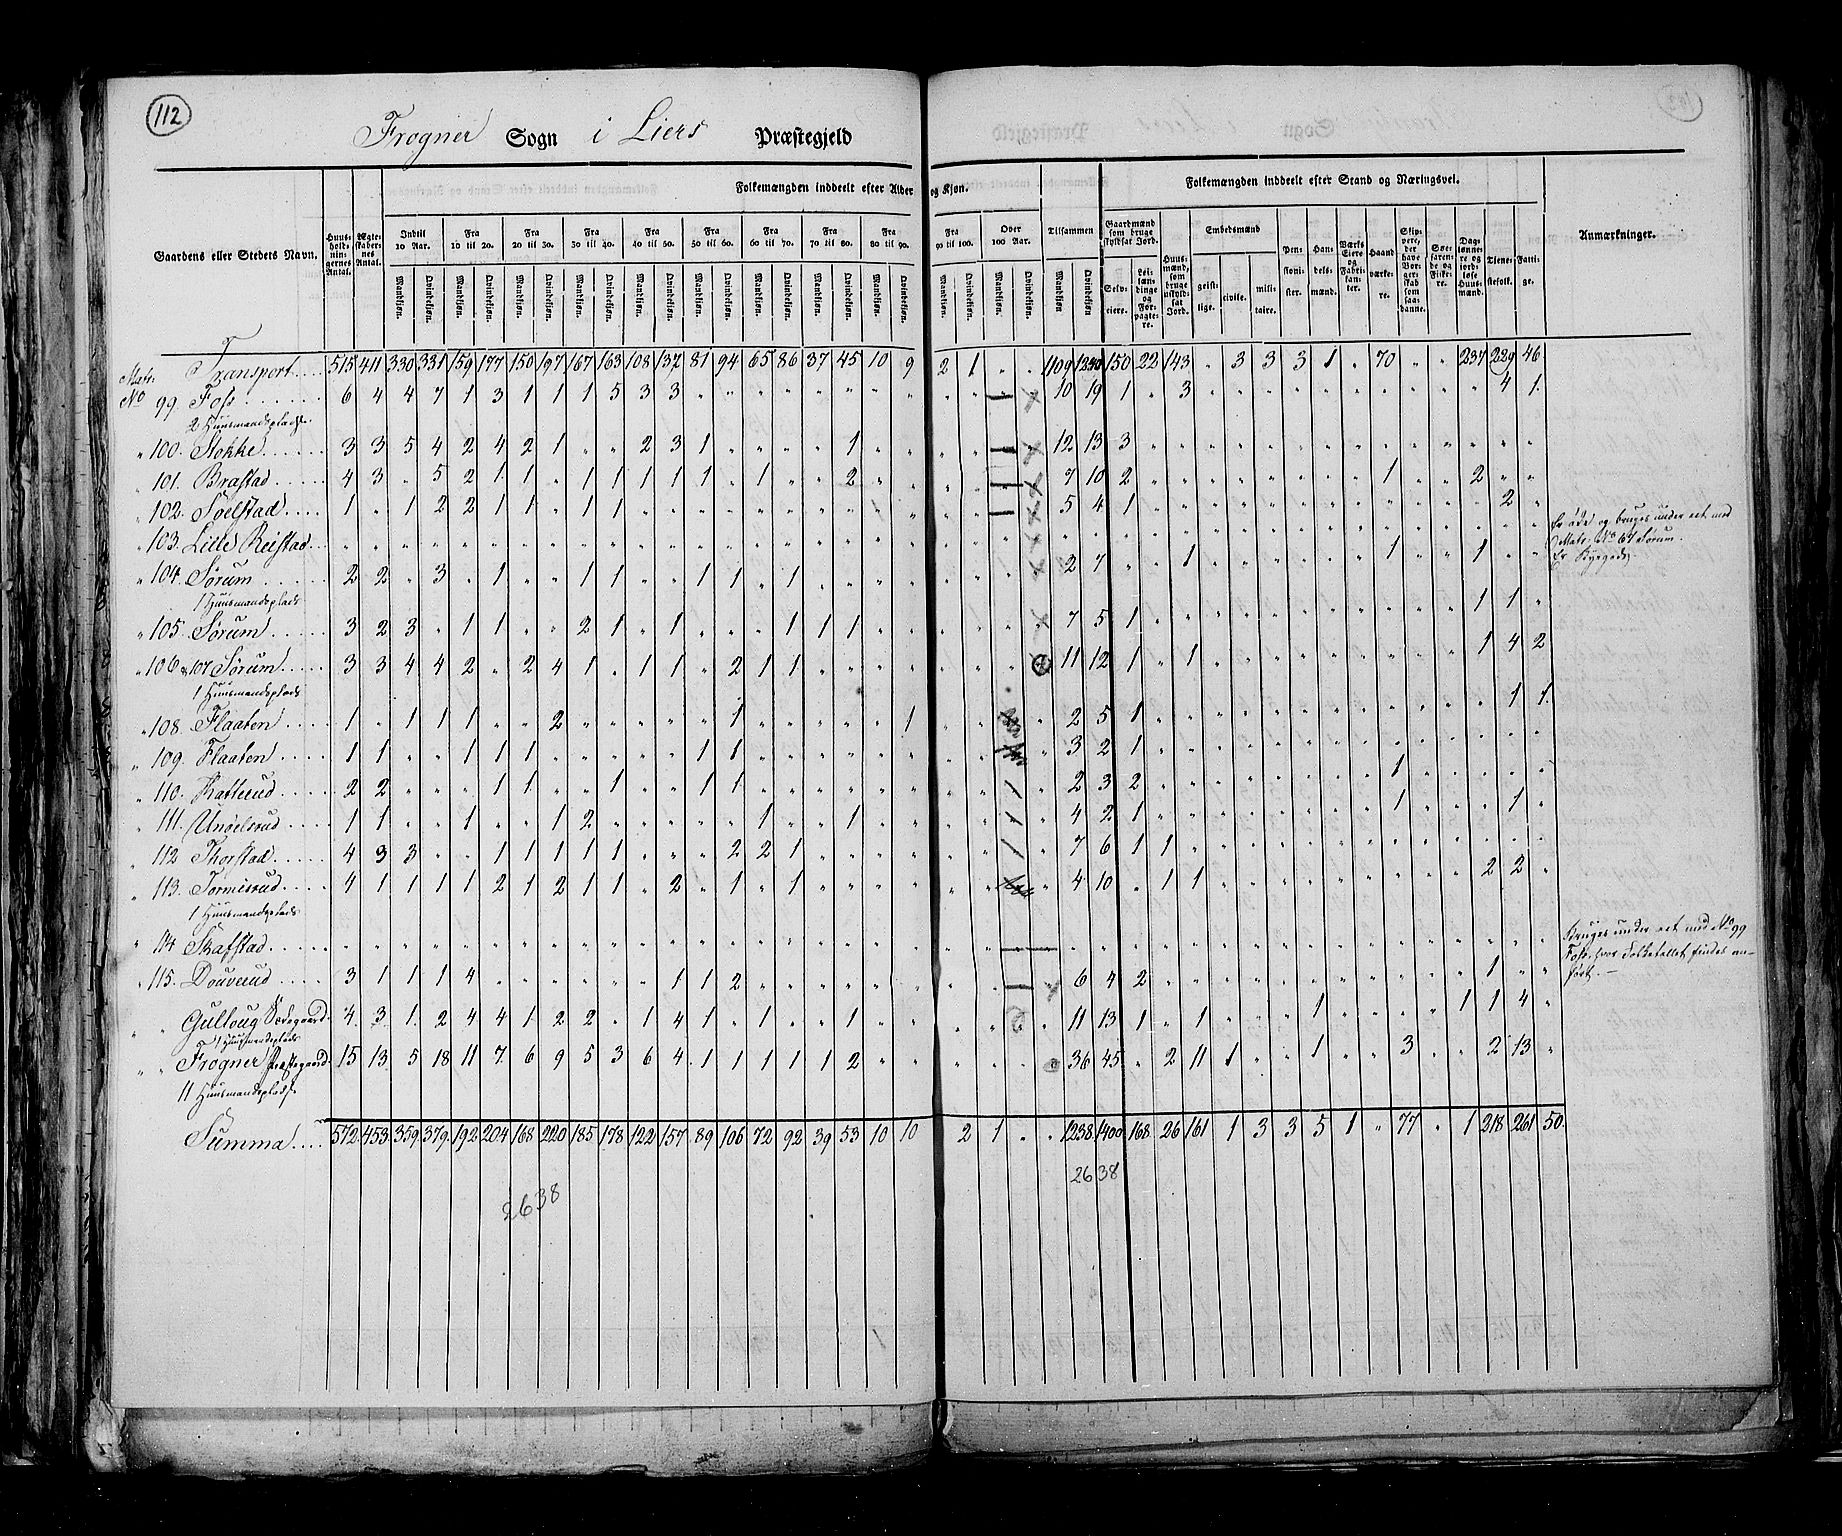 112
Frogner Sogn i Liers Præstegjeld
Folkemængden inddeelt efter Alder og Kjøn. Folkemængden inddeelt efter Stand og Næringsvei.
Gaardens eller Stedets Navn. Huus-holdningernes Antal. Ægteskabernes Antal. Indtil 10 Aar. Fra 10 til 20. Fra 20 til 30. Fra 30 til 40. Fra 40 til 50. Fra 50 til 60. Fra 60 til 70. Fra 70 til 80. Fra 80 til 90. Fra 90 til 100. Over 100 Aar. Tilsammen Gaardmænd som bruge skyldsat Jord. Huusmænd, som bruge uskyldsat Jord. Embedsmænd Pensionister. Handelsmænd. Værks Eiere og Fabrikanter. Haandværkere. Skippere, der have Borgerskab som saadanne. Søefarende og Fiskere. Daglønnere og jordløse Huusmænd. Tjenestefolk. Fattige. Anmærkninger.
Mandkjøn. Qvindekjøn. Mandkjøn. Qvindekjøn. Mandkjøn. Qvindekjøn. Mandkjøn. Qvindekjøn. Mandkjøn. Qvindekjøn. Mandkjøn. Qvindekjøn. Mandkjøn. Qvindekjøn. Mandkjøn. Qvindekjøn. Mandkjøn. Qvindekjøn. Mandkjøn. Qvindekjøn. Mandkjøn. Qvindekjøn. Mandkjøn. Qvindekjøn. Selveiere. Leilændinge og Forpagtere. geistlige. civile. militaire.
Transport 515 411 330 331 159 177 150 197 167 163 108 137 81 94 65 86 37 45 10 9 2 1 " " 1109 150 22 143 " 3 3 3 1 " 70 " " 237 229 46
Matr. No 99. Foss 6 4 4 7 1 3 1 1 1 5 3 3 10 19 1 " 3 4 1
2 Huusmandspladse
" 100. Stokke 3 3 5 4 2 4 2 1 " " 2 3 1 " " " " 1 12 13 3
" 101. Brastad 4 3 " 5 2 1 1 " 1 1 1 1 1 " 1 " " 2 7 10 2 1 2
" 102. Soelstad 1 " 1 2 2 1 1 " 1 1 5 4 1 2
" 103. Lille Reistad Er øde og bruges under eet med Matr: No 67 Sørum.
" 104. Sørum 2 2 " 3 " 1 " " 1 1 " " 1 1 " 1 2 7 " " 1 1 1 Er Bygeds.
1 Huusmandsplads
" 105. Sørum 3 2 3 " 1 1 " " 2 1 " 1 " " " 1 1 1 7 5 1 1 1
" 106 & 107 Sørum 3 3 4 4 2 " 2 4 1 " 1 1 " 2 1 1 11 12 1 " 1 1 4 2
1 Huusmandsplads
" 108. Flaaten 1 " 1 1 1 " " 2 " " " " " 1 " " " " " 1 2 5 1 1 1
" 109. Flaaten 1 1 " " 1 1 1 " " " " " 1 1 3 2 1
" 110. Katterud 2 2 " " " 1 1 " " 1 " " 1 1 2 3 2 1
" 111. Unøelsrud 1 1 " " 1 " " 1 2 " " " " " 1 " " 1 4 2 1 1 1
" 112 Thorstad 4 3 3 " " 1 1 1 1 1 " " " 2 2 1 7 6 1 1
" 113. Tormisrud 4 1 1 1 1 2 1 2 1 1 " 2 " 1 " 1 4 10 " 1 1 2 2
1 Huusmandsplads
" 114 Skafstad Bruges under eet med No 99 Foss, hvor Folketallet findes anført.
" 115. Douverud 3 1 1 1 4 1 1 2 6 4 2 1
" " Gulloug Sædegaard 4 3 1 2 4 4 1 2 2 " 1 4 1 " 1 " " 1 11 13 1 " 1 1 1 1 4
1 Huusmandsplads
" " Frogner Præstegaard 15 13 5 18 11 7 6 9 5 3 6 4 1 1 1 1 1 2 36 45 " 2 11 1 1 3 2 13
11 Huusmandspladse
Summa 572 453 359 379 192 204 168 220 185 178 122 157 89 106 72 92 39 53 10 10 2 1 " " 1238 1400 168 26 161 1 3 3 5 1 " 77 " 1 218 261 50
2638
2638